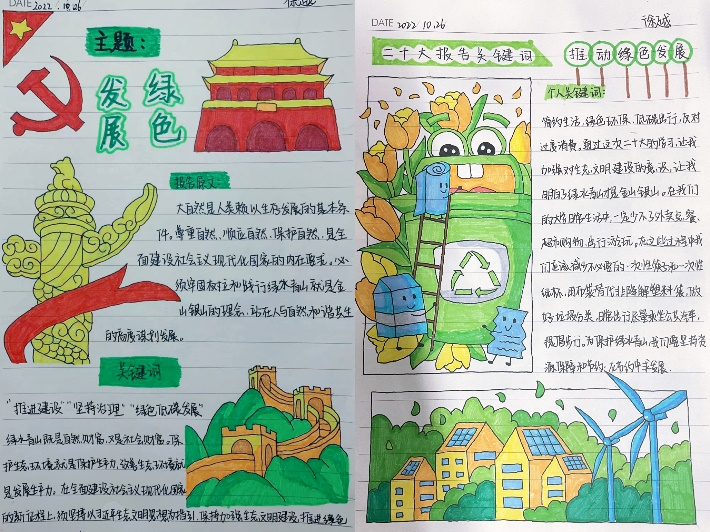 DATE 2022.10.26
主题:
绿色
发展
报告原文
大自然是人类赖以生存发展的基本条
件。尊重自然、顺应自然、保护自然,是全
面建设社会主义现代化国家的内在要求。必
须牢固树立和践行绿水青山就是金
山银山的理念,站在人与自然和谐共生
的高度谋划发展。
关键词
"推进建设" "坚持治理" "绿色低碳发展"
绿水青山既是自然财富,又是社会财富。保
护生态环境就是保护生产力,改善生态环境就
是发展生产力。在全面建设社会主义现代化国家
的新征程上,须坚持以习近平生态文明思想为指引,保持加强生态文明建设,推进绿色
DATE 2022 10.26
二十大报告关键词
推动绿色发展
个人关键词:
简约生活,绿色环保,低碳出行,反对
过度消费。通过这次二十大的学习,让我
加深对生态文明建设的意识,让我
明白了绿水青山就是金山银山。在我们
的大学日常生活中,一定少不了外卖点餐、
超市购物、出行游玩。在这些过程中我
们应该减少不必要的一次性筷子和一次性
纸杯,用布袋替代非降解塑料袋,做
好垃圾分类,日常出行尽量乘坐公共汽车,
提倡步行。为保护绿水青山我们需坚持资
源保障和节约,在节约中求发展。